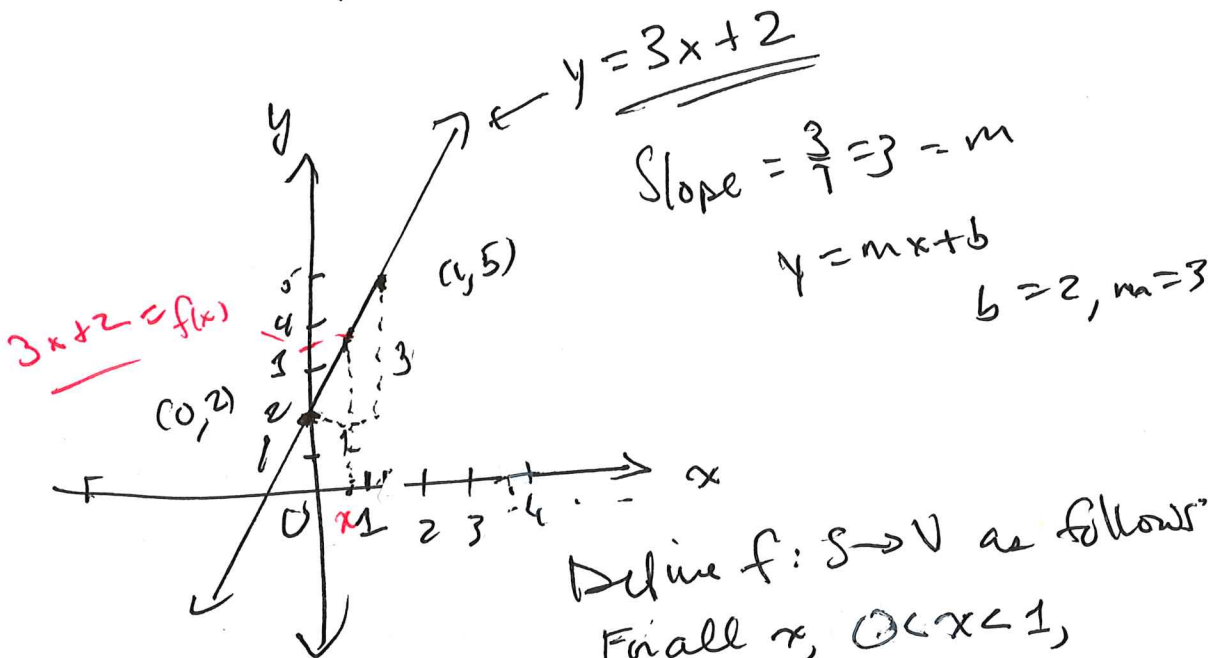 y = 3x + 2
Slope = 3/1 = 3 = m
y = mx + b
b = 2, m = 3
y
(1, 5)
5
4
3
2
1
3x + 2 = f(x)
3
(0, 2)
1
x
0 x 1 2 3 4
Define f: S → V as follows
For all x, 0 < x < 1,